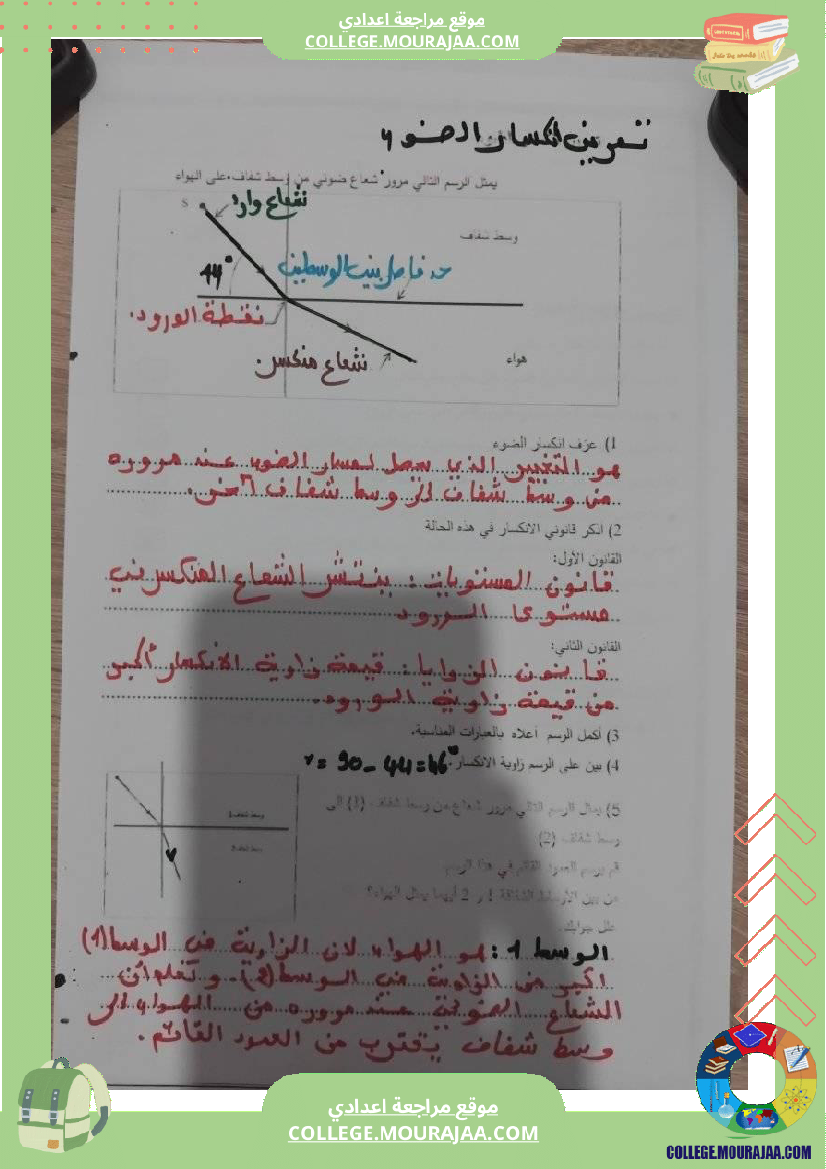 موقع مراجعة اعدادي
COLLEGE.MOURAJAA.COM
تمرين انكسار الضوء
يمثل الرسم التالي مرور شعاع ضوئي من وسط شفاف على الهواء
S
شعاع وارد
وسط شفاف
حد فاصل بين الوسطين
44°
نقطة الورود.
هواء
شعاع منكسر.
1) عرّف انكسار الضوء
هو التغيير الذي يحصل لمسار الضوء عند مروره
من وسط شفاف إلى وسط شفاف آخر.
2) اذكر قانوني الانكسار في هذه الحالة
القانون الأول:
قانون المستويات: ينتشر الشعاع المنكسر في
مستوى الورود
القانون الثاني:
قانون الزوايا: قيمة زاوية الانكسار أكبر
من قيمة زاوية الورود.
3) أكمل الرسم أعلاه بالعبارات المناسبة.
4) بين على الرسم زاوية الانكسار. r = 90 - 44 = 46°
5) يمثل الرسم التالي مرور شعاع من وسط شفاف (1) إلى
وسط شفاف (2)
قم برسم العمود القائم في هذا الرسم
من بين الأوساط الشفافة 1 و 2 أيهما يمثل الهواء؟
علل جوابك
الوسط 1: هو الهواء لأن الزاوية في الوسط (1)
أكبر من الزاوية في الوسط (2). و نعلم أن
الشعاع الضوئي عند مروره من الهواء إلى
وسط شفاف يقترب من العمود القائم.
موقع مراجعة اعدادي
COLLEGE.MOURAJAA.COM
COLLEGE.MOURAJAA.COM